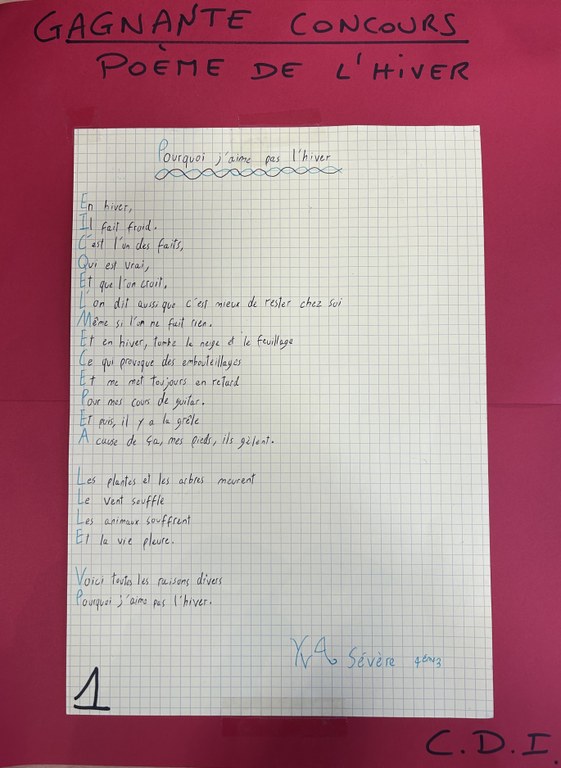 GAGNANTE CONCOURS
POÈME DE L'HIVER
Pourquoi j'aime pas l'hiver
En hiver,
Il fait froid.
C'est l'un des faits,
Qui est vrai,
Et que l'on croit.
L'on dit aussi que c'est mieux de rester chez soi
Même si l'on ne fait rien.
Et en hiver, tombe la neige et le feuillage
Ce qui provoque des embouteillages
Et me met toujours en retard
Pour mes cours de guitar.
Et puis, il y a la grêle
A cause de ça, mes pieds, ils gèlent.
Les plantes et les arbres meurent
Le vent souffle
Les animaux souffrent
Et la vie pleure.
Voici toutes les raisons divers
Pourquoi j'aime pas l'hiver.
Sévère 4èm3
1
C.D.I.